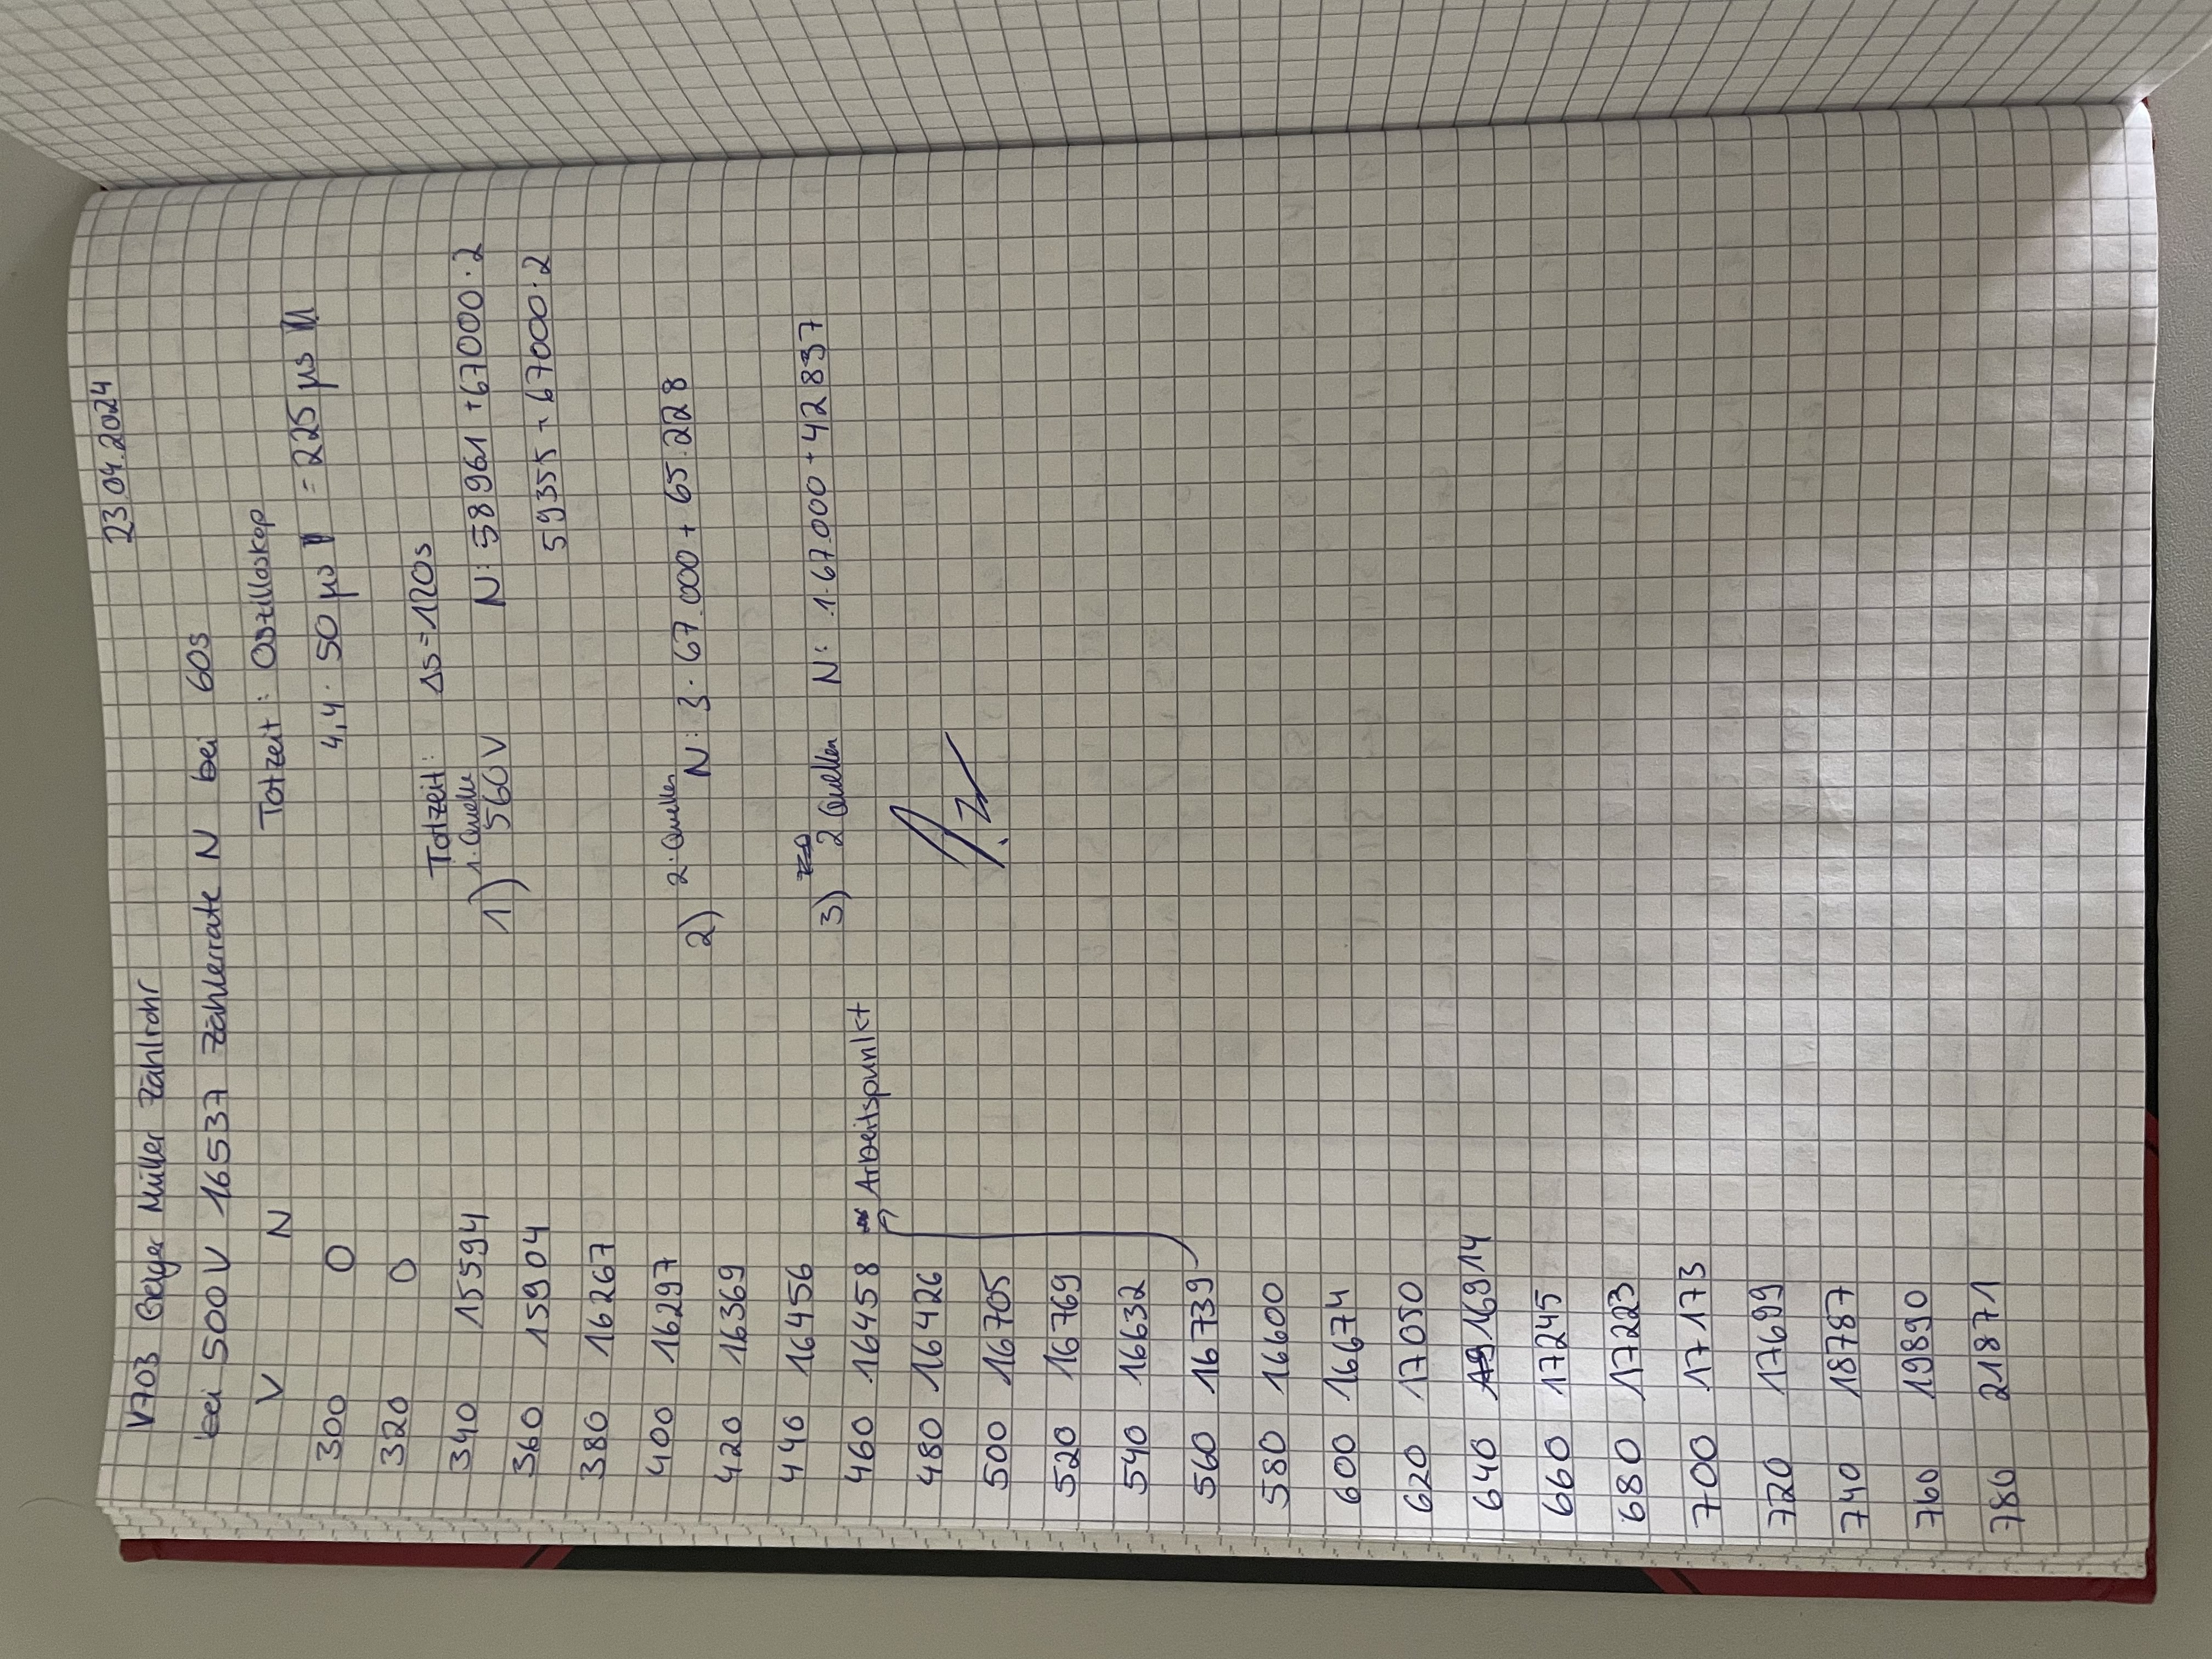 23.04.2024
V703 Geiger Müller Zählrohr
bei 500V 16537 Zählerrate N bei 60s
V N
300 0
320 0
340 15594
360 15904
380 16267
400 16297
420 16369
440 16456
460 16458 Arbeitspunkt
480 16426
500 16705
520 16769
540 16632
560 16739
580 16600
600 16674
620 17050
640 16914
660 17245
680 17223
700 17173
720 17699
740 18787
760 19890
780 21871
Totzeit: Oszilloskop
4,4 · 50 µs = 225 µs
Totzeit: Δs=120s
1. Quelle
1) 560V N: 58961 +67000·2
59355 + 67000·2
2. Quellen
2) N: 3·67.000 + 65.228
3) 2 Quellen N: 1·67.000 + 42837